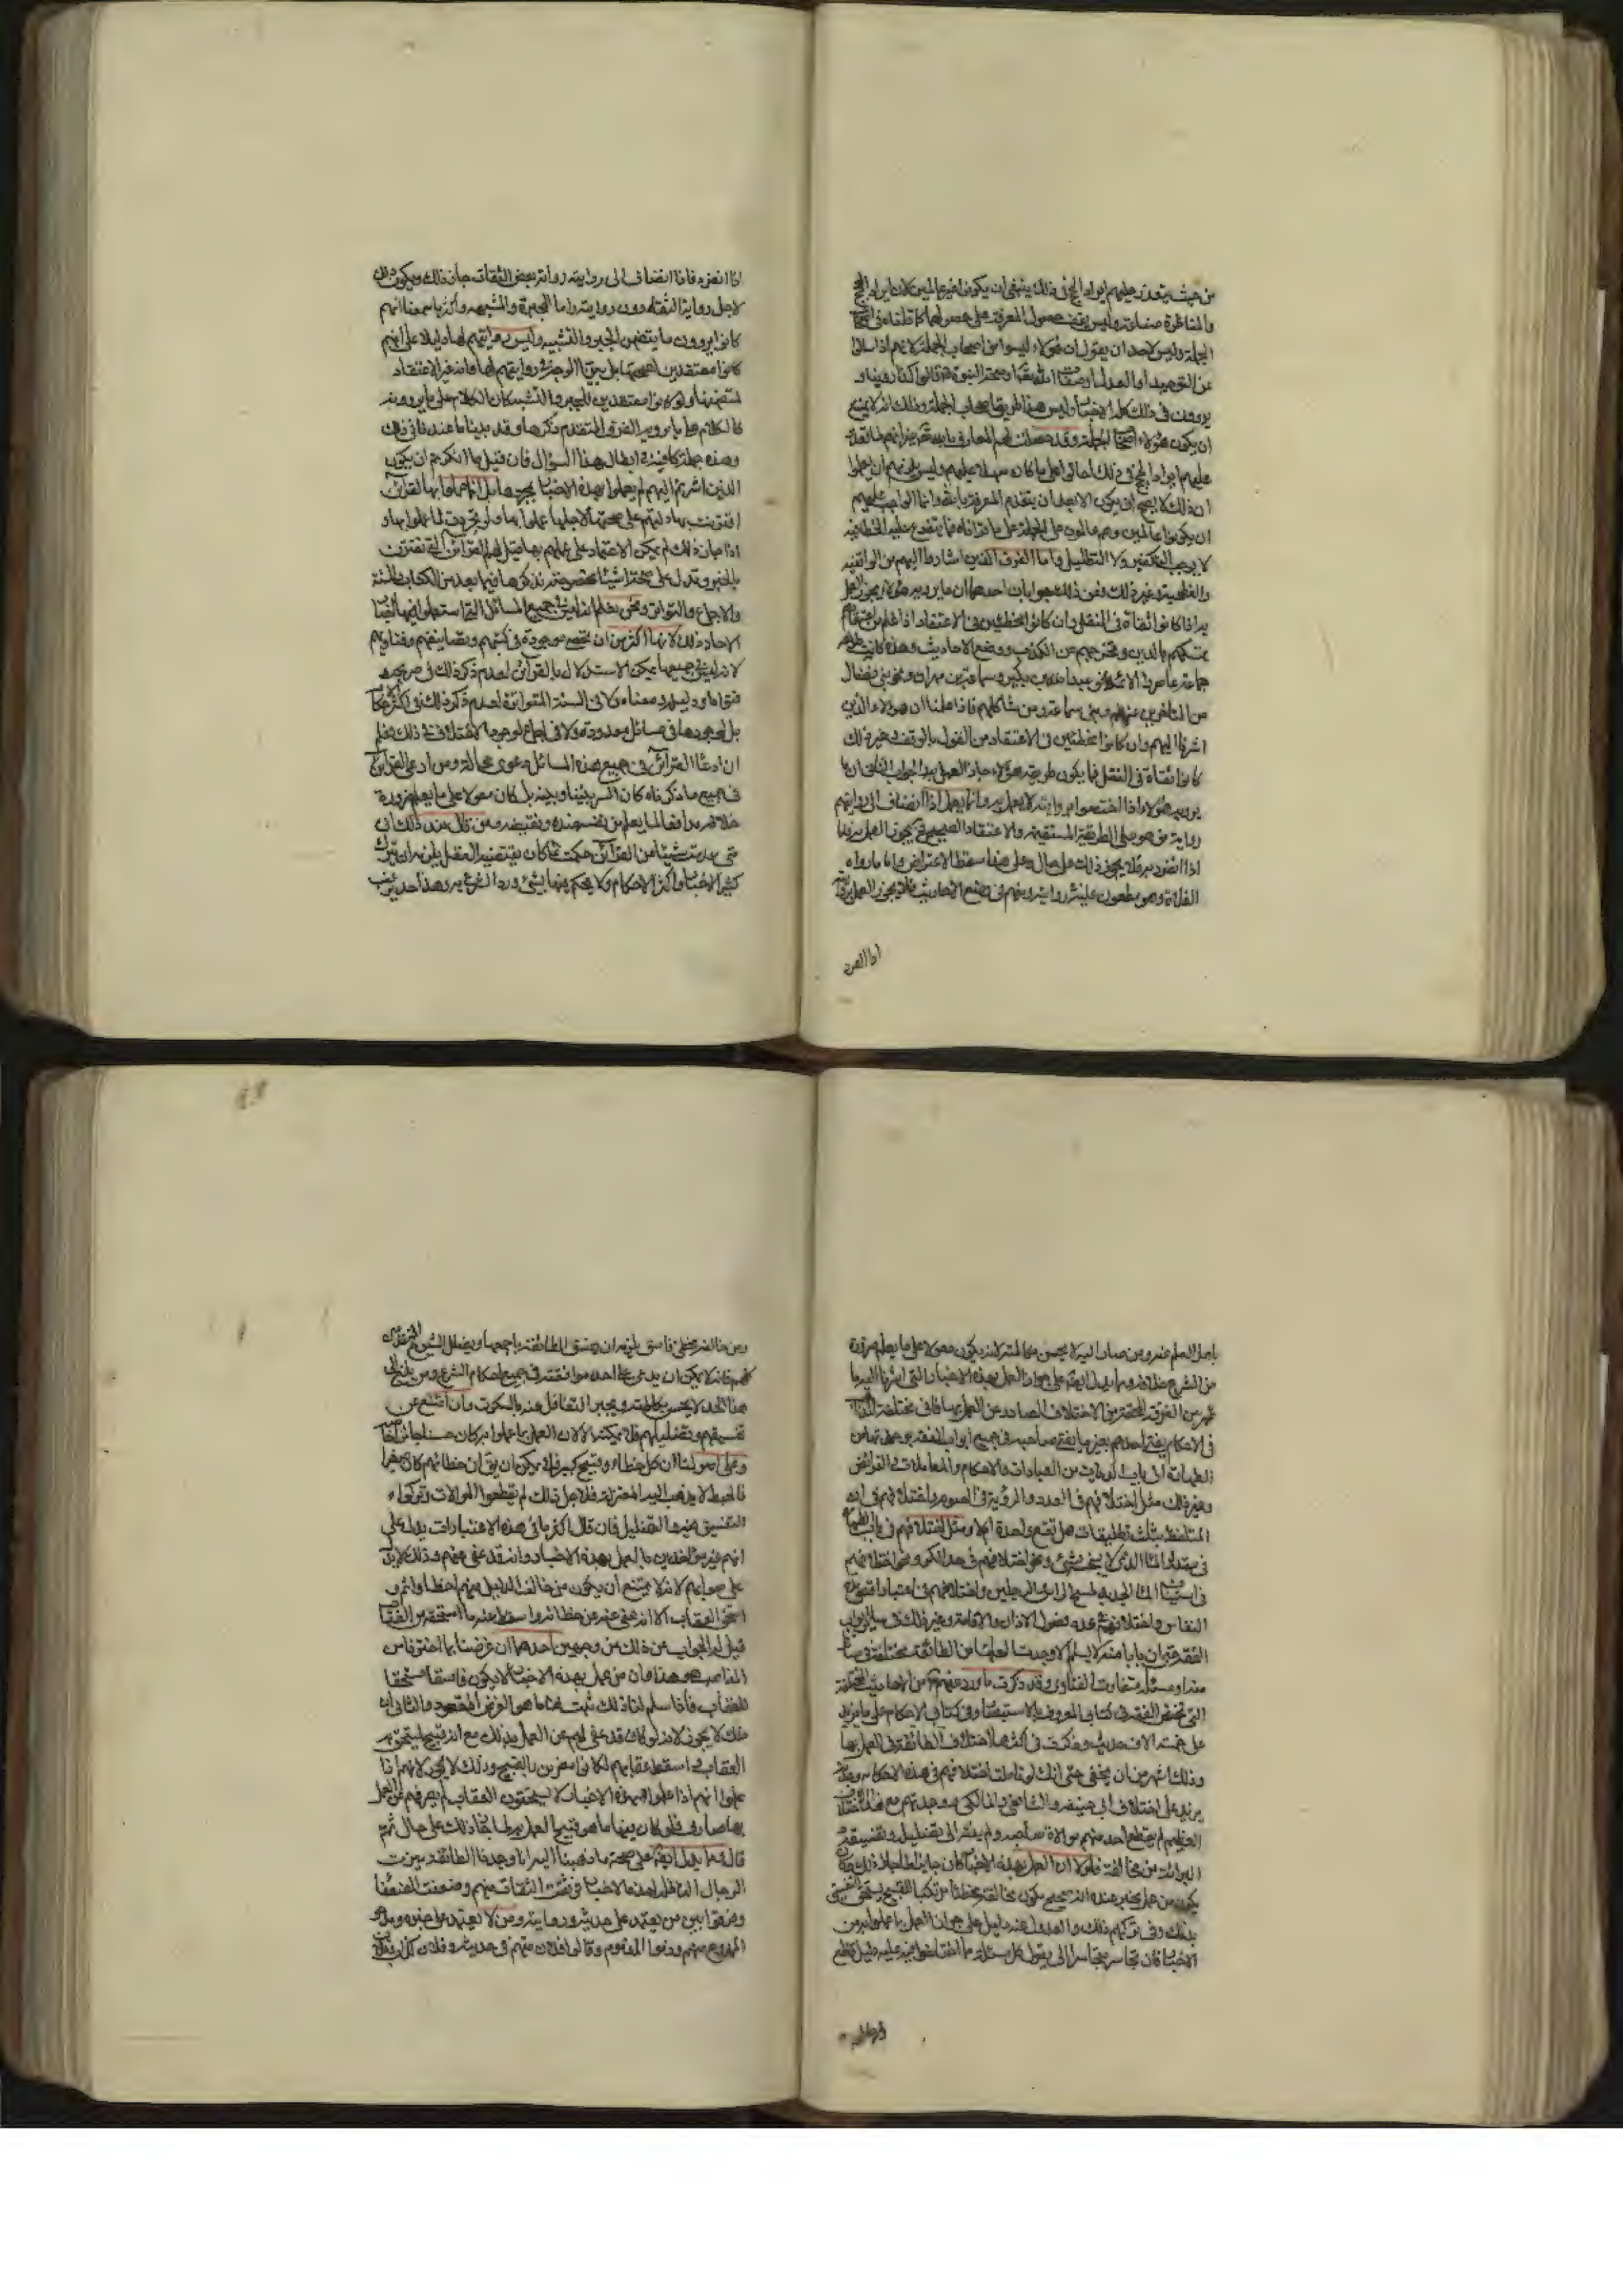 من حيث يتعذر عليهم ايراد الحج في ذلك ينبغي ان يكونوا غير عالمين لان ايراد الحج
والمناظرة صناعة وليس يقف حصول المعرفة على حصولها كما قلناه في اصحاب
الجملة وليس لاحد ان يقول ان هؤلاء ليسوا من اصحاب الجملة لانهم اذا سئلوا
عن التوحيد او العدل او صفات الله تعالى او صحة النبوة قالوا كذا روينا و
يروون في ذلك كله الاخبار وليس هذا طريقة اصحاب الجملة وذلك انه لا يمتنع
ان يكون هؤلاء اصحاب الجملة وقد حصلت لهم المعارف بالله غير انهم لما تعذر
عليهم ايراد الحج في ذلك احالوا على ما كان سهلا عليهم وليس يلزمهم ان يعلموا
ان ذلك لا يصح ان يكون الا بعد ان يتقدم المعرفة بالله وانما الواجب عليهم
ان يكونوا عالمين وهم عالمون على الجملة على ما قررناه فما يتفرع عليه الخطأ فيه
لا يوجب التكفير ولا التضليل واما الفرق الذين اشاروا اليهم من الواقفية
والفطحية وغير ذلك فعن ذلك جوابان احدهما ان ما يرويه هؤلاء يجوز العمل
به اذا كانوا ثقاة في النقل وان كانوا مخطئين في الاعتقاد اذا علم من اعتقادهم
تمسكهم بالدين وتحرجهم عن الكذب ووضع الاحاديث وهذه كانت طريقة
جماعة عاصروا الائمة نحو عبد الله بن بكير وسماعة بن مهران ونحو بني فضال
من المتأخرين عنهم وبني سماعة ومن شاكلهم فاذا علمنا ان هؤلاء الذين
اشرنا اليهم وان كانوا مخطئين في الاعتقاد من القول بالوقف وغير ذلك
كانوا ثقاة في النقل فما يكون طريقه هؤلاء جاز العمل به والجواب الثاني ان ما
يرويه هؤلاء اذا اختصوا بروايته لا يعمل به وانما يعمل اذا انضاف الى روايتهم
رواية من هو على الطريقة المستقيمة والاعتقاد الصحيح فح يجوز العمل به فاما
اذا انفرد به فلا يجوز ذلك على حال وعلى هذا سقط الاعتراض واما ما رواه
الغلاة ومن هو مطعون عليه في روايته ومتهم في وضع الاحاديث فلا يجوز العمل بروايته
اذا انفرد
اذا انفرد فاذا انضاف الى روايته رواية بعض الثقات جاز ذلك ويكون ذلك
لاجل رواية الثقة دون روايته واما المجبرة والمشبهة فاكثر ما معنا انهم
كانوا يروون ما يتضمن الجبر والتشبيه وليس روايتهم لها دليلا على انهم
كانوا معتقدين لصحتها بل بينا الوجه في روايتهم لها وانه غير الاعتقاد
لمتضمنها ولو كانوا معتقدين للجبر والتشبيه كان الكلام على ما يروونه
كالكلام على ما يرويه الفرق المتقدم ذكرها وقد بينا ما عندنا في ذلك
وهذه جملة كافية في ابطال هذا السؤال فان قيل ما انكرتم ان يكون
الذين اشرتم اليهم لم يعملوا بهذه الاخبار بمجردها بل انما عملوا بها لقرائن
اقترنت بها دلتهم على صحتها لاجلها عملوا بها ولو تجردت لما عملوا بها و
اذا جاز ذلك لم يمكن الاعتماد على عملهم بها قيل لهم القرائن التي تقترن
بالخبر وتدل على صحته اشياء مخصوصة نذكرها فيما بعد من الكتاب والسنة
والاجماع والتواتر ونحن نعلم انه ليس في جميع المسائل التي استعملوا فيها اخبار
الاحاد ذلك لانها اكثر من ان تحصى موجودة في كتبهم وتصانيفهم وفتاويهم
لانه ليس في جميعها يمكن الاستدلال بالقرآن لعدم ذكر ذلك في صريحه و
فحواه او دليله ومعناه ولا في السنة المتواترة لعدم ذكر ذلك في اكثر الاحكام
بل لوجودها في مسائل معدودة ولا في اجماع لوجود الاختلاف في ذلك فعلم
ان ادعاء القرائن في جميع هذه المسائل دعوى محالة ومن ادعى القرائن
في جميع ما ذكرناه كان السبر بيننا وبينه بل كان معولا على ما يعلم ضرورة
خلافه مدافعا لما يعلم من نفسه ضده ونقيضه ومن قال عند ذلك اني
متى عدمت شيئا من القرائن حكمت بما كان يقتضيه العقل يلزمه ان يترك
كثر الاخبار واكثر الاحكام ولا يحكم فيها بشئ ورد الشرع به وهذا حد يرغب
باهل العلم عنه ومن صار اليه لا يحسن مكالمته لانه يكون معولا على ما يعلم ضرورة
من الشرع خلافه ومما يدل ايضا على جواز العمل بهذه الاخبار التي اشرنا اليها ما
ظهر من الفرقة المحقة من الاختلاف الصادر عن العمل بها فاني وجدتها مختلفة المذاهب
في الاحكام يفتي احدهم بغير ما يفتي صاحبه في جميع ابواب الفقه من
الطهارة الى باب الديات من العبادات والاحكام والمعاملات والفرائض
وغير ذلك مثل اختلافهم في العدد والرؤية في الصوم واختلافهم في ان
التلفظ بثلث تطليقات هل تقع واحدة ام لا ومثل اختلافهم في باب الطهارة
في مقدار الماء الذي لا ينجسه شئ ونحو اختلافهم في حد الكر ونحو اختلافهم
في استيناف الماء الجديد لمسح الرأس والرجلين واختلافهم في اعتبار اقصى مدة
النفاس واختلافهم في عدد فصول الاذان والاقامة وغير ذلك في سائر ابواب
الفقه حتى ان بابا منه لا يسلم الا وجدت العلماء من الطائفة مختلفة في مسائل
منه او مسئلة متفاوتة الفتاوى وقد ذكرت ما ورد عنهم من الاحاديث المختلفة
التي تختص الفقه في كتابي المعروف بالاستبصار وفي كتاب الاحكام على ما يزيد
على خمسة الاف حديث وذكرت في اكثرها اختلاف الطائفة في العمل بها
وذلك اشهر من ان يخفى حتى انك لو تاملت اختلافهم في هذه الاحكام وجدته
يزيد على اختلاف ابي حنيفة والشافعي ومالك ووجدتهم مع هذا الاختلاف
العظيم لم يقطع احد منهم موالاة صاحبه ولم ينته الى تضليله وتفسيقه و
البرائة من مخالفه فلولا ان العمل بهذه الاخبار كان جايزا لما جاز ذلك وكان
يكون من عمل بخبر عنده انه صحيح يكون مخالفه مخطئا مرتكبا للقبيح يستحق التفسيق
بذلك وفي تركهم ذلك والعدول عنه دليل على جواز العمل بما عملوا به من
الاخبار فان تجاسر متجاسر الى ان يقول كل مسئلة مما اختلفوا فيه عليه دليل قاطع
ومن خالفه مخطئ فاسق يلزمه ان يفسق الطائفة باجمعها ويضلل الشيوخ المتقدمين
كلهم فانه لا يمكن ان يدعي على احد موافقته في جميع احكام الشرع ومن بلغ الى
هذا الحد لا يحسن مكالمته ويجب التغافل عنه بالسكوت وان امتنع من
تفسيقهم وتضليلهم فلا يمكنه الا لان العمل بما عملوا به كان حسنا جائزا خاصة
وعلى اصولنا ان كل خطاء وقبيح كبير فلا يمكن ان يق ان خطائهم كان صغيرا
فانحبط لا يذهب اليه المعتزلة فلاجل ذلك لم يقطعوا الموالات وتركوا
التفسيق فيه والتضليل فان قال اكثر ما في هذه الاعتبارات يدل على
انهم غير مؤاخذين بالعمل بهذه الاخبار وانه قد عفى عنهم وذلك لا يدل
على صوابهم لانه لا يمتنع ان يكون من خالف الدليل منهم اخطأ واثم و
استحق العقاب الا انه عفى عنه عن خطائه واسقط عنه ما استحقه من العقاب
قيل له الجواب عن ذلك من وجهين احدهما ان غرضنا بما اخترناه من
المذاهب هو هذا وان من عمل بهذه الاخبار لا يكون فاسقا مستحقا
للعقاب فاذا سلم لنا ذلك ثبت لنا ما هو الغرض المقصود والثاني ان
ذلك لا يجوز لانه لو كان قد عفي لهم عن العمل بذلك مع انه قبيح يستحق به
العقاب واسقط عقابهم لكانوا مغرين بالقبيح وذلك لا يجوز لانهم اذا
علموا انهم اذا عملوا بهذه الاخبار لا يستحقون العقاب لم يصرفهم عن العمل
بها صارف فلو كان فيها ما هو قبيح العمل به لما جاز ذلك على حال ثم
قال ومما يدل ايضا على صحة ما ذهبنا اليه انا وجدنا الطائفة ميزت
الرجال الناقلة لهذه الاخبار فوثقت الثقات منهم وضعفت الضعفاء
وفرقوا بين من يعتمد على حديثه وروايته ومن لا يعتمد على خبره ومدحوا
الممدوح منهم وذموا المذموم وقالوا فلان متهم في حديثه وفلان كذاب وفلان